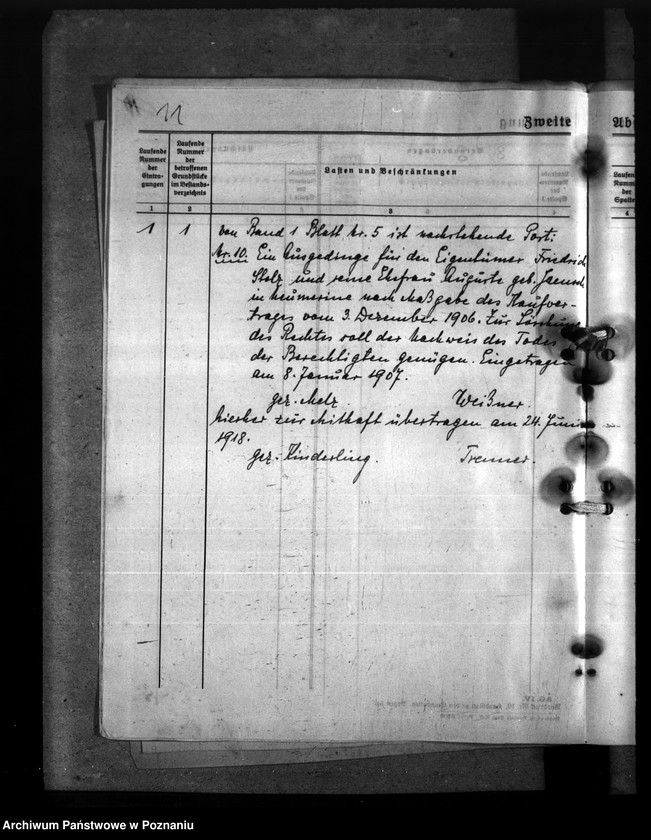 11
Zweite
Ab
Laufende Nummer der Eintragungen
Laufende Nummer der betroffenen Grundstücke im Bestandsverzeichnis
Lasten und Beschränkungen
Laufen
Numm
der
Spalte
1 2 3 4
1 1 Von Band 1 Blatt Nr. 5 ist nachstehende Post:
Nr. 10. Ein Ausgedinge für den Eigentümer Friedrich
Stolz und seine Ehefrau Auguste geb. Jaensch
in Neumerine nach Maßgabe des Kaufver-
trages vom 3. Dezember 1906. Zur Löschung
des Rechtes soll der Nachweis des Todes
der Berechtigten genügen. Eingetragen
am 8. Januar 1907.
gez. Metz. Weißner.
Hierher zur Mithaft übertragen am 24. Juni
1918.
gez. Kinderling. Tremmer.
Archiwum Państwowe w Poznaniu